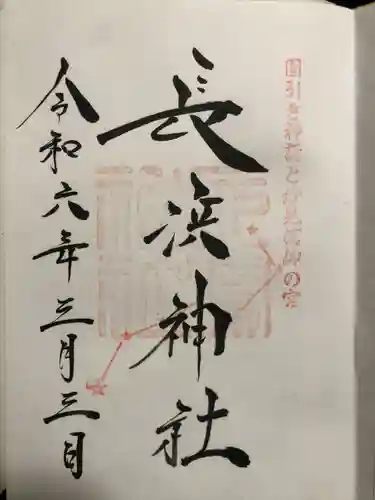 國引き神話と妙見信仰の宮
長浜神社
令和六年三月三日